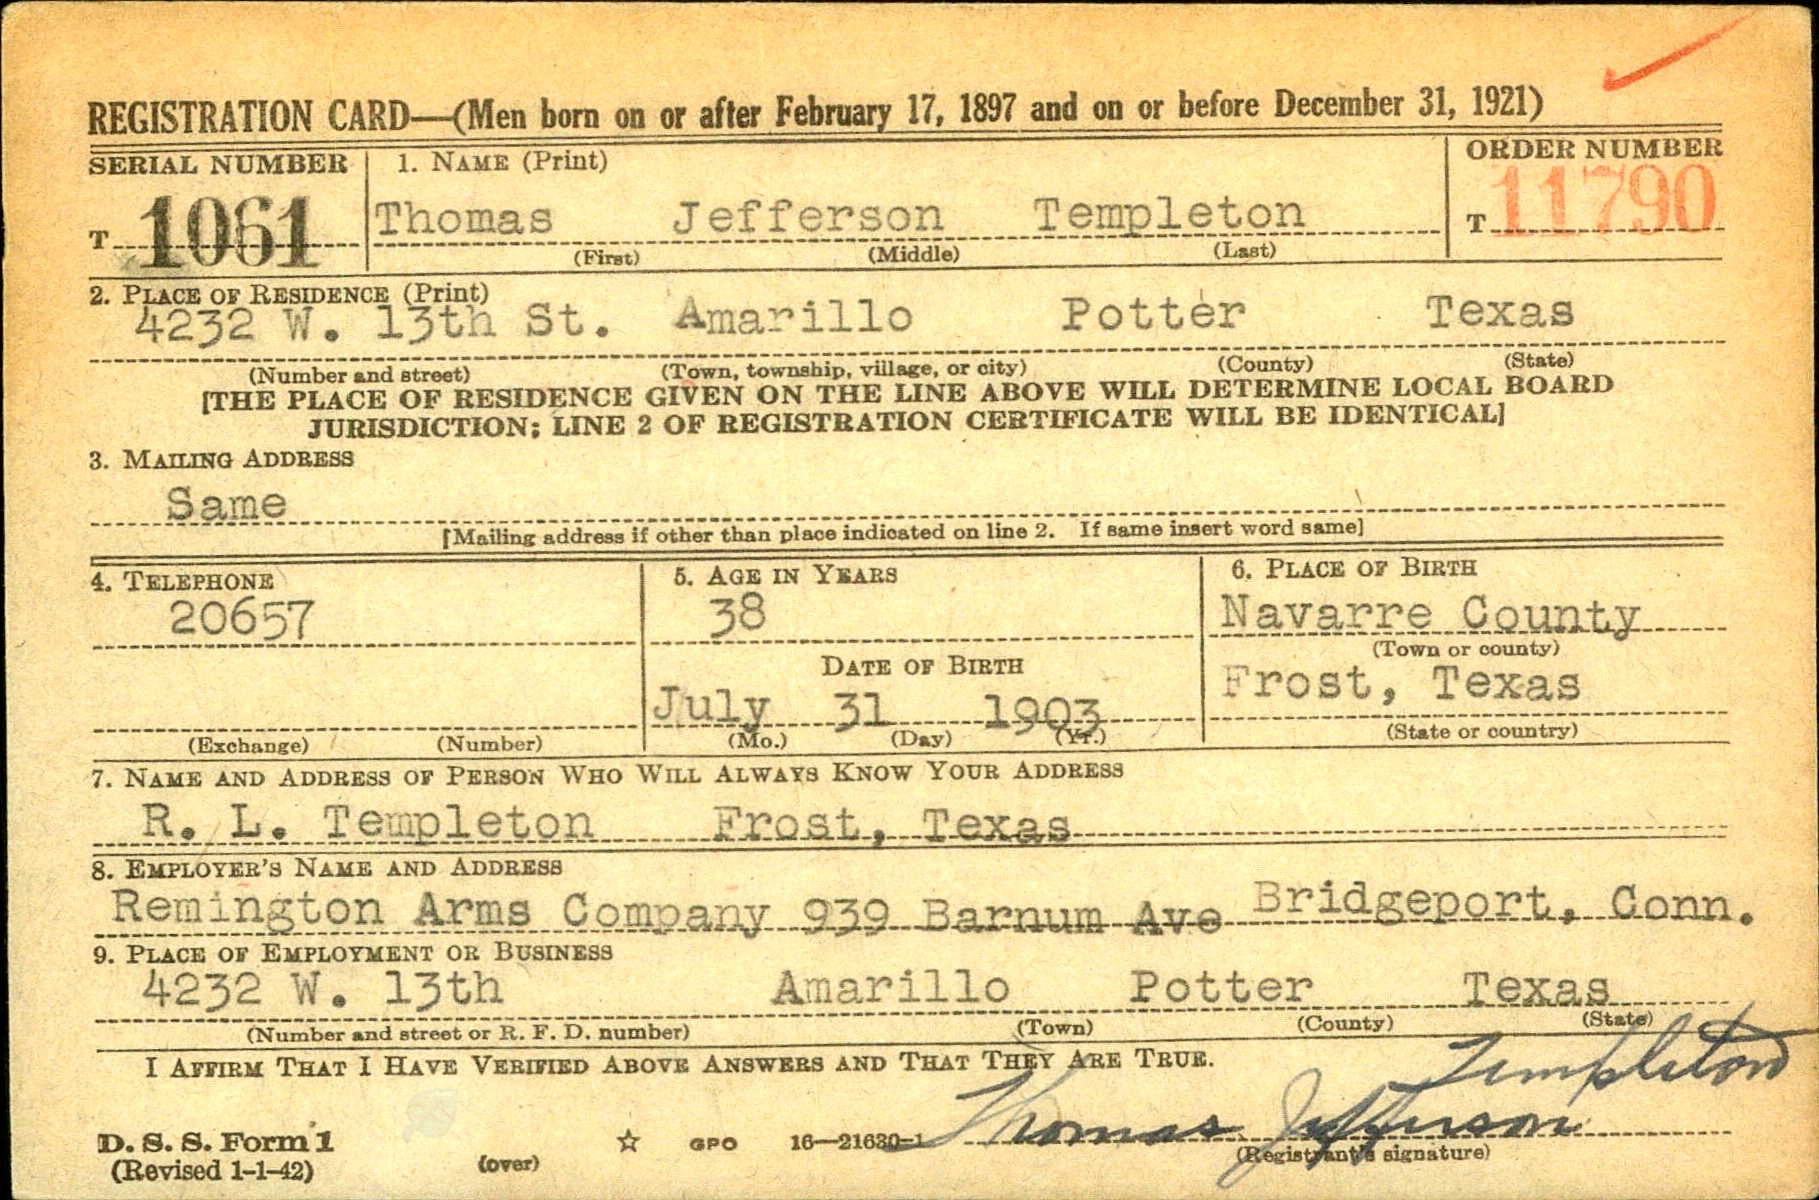 REGISTRATION CARD—(Men born on or after February 17, 1897 and on or before December 31, 1921)
SERIAL NUMBER 1. NAME (Print) ORDER NUMBER
T 1061 Thomas Jefferson Templeton T 11790
(First) (Middle) (Last)
2. PLACE OF RESIDENCE (Print)
4232 W. 13th St. Amarillo Potter Texas
(Number and street) (Town, township, village, or city) (County) (State)
[THE PLACE OF RESIDENCE GIVEN ON THE LINE ABOVE WILL DETERMINE LOCAL BOARD
JURISDICTION; LINE 2 OF REGISTRATION CERTIFICATE WILL BE IDENTICAL]
3. MAILING ADDRESS
Same
[Mailing address if other than place indicated on line 2. If same insert word same]
4. TELEPHONE 5. AGE IN YEARS 6. PLACE OF BIRTH
20657 38 Navarre County
(Town or county)
DATE OF BIRTH
July 31 1903 Frost, Texas
(Exchange) (Number) (Mo.) (Day) (Yr.) (State or country)
7. NAME AND ADDRESS OF PERSON WHO WILL ALWAYS KNOW YOUR ADDRESS
R. L. Templeton Frost, Texas
8. EMPLOYER'S NAME AND ADDRESS
Remington Arms Company 939 Barnum Ave Bridgeport, Conn.
9. PLACE OF EMPLOYMENT OR BUSINESS
4232 W. 13th Amarillo Potter Texas
(Number and street or R. F. D. number) (Town) (County) (State)
I AFFIRM THAT I HAVE VERIFIED ABOVE ANSWERS AND THAT THEY ARE TRUE.
Thomas Jefferson Templeton
D. S. S. Form 1 GPO 16—21630-1
(Revised 1-1-42) (over) (Registrant's signature)